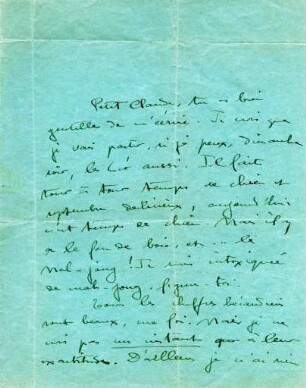 Petit Claude, tu es bien
gentille de m'écrire. Je crois que
je vais partir, si je peux, dimanche
soir, le 20 aussi. Il fait
tour à tour temps de chien et
septembre délicieux, aujourd'hui
c'est temps de chien. Mais il y
a le feu de bois, et ... le
Mah-jong ! Je suis intoxiquée
de mah-jong, figure-toi.
Tous les chiffres
sont beaux, ma foi. Mais je ne
crois pas un instant que à leur
exactitude. D'ailleurs je n'ai rien